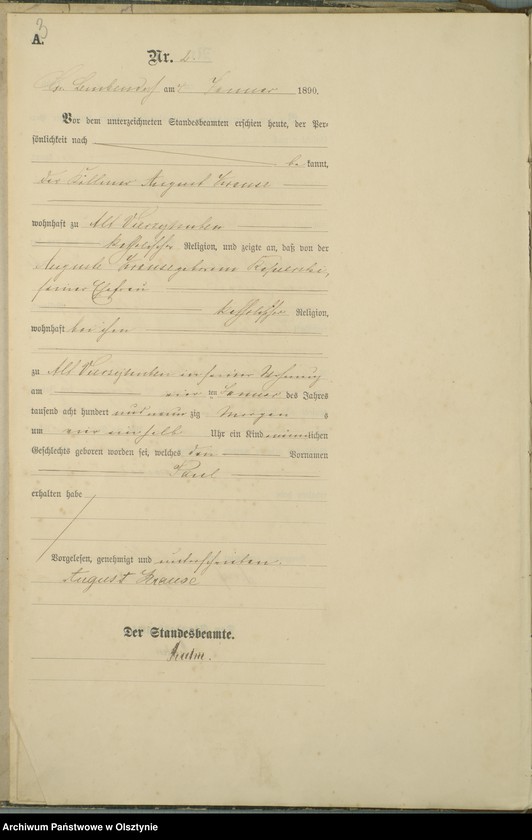 3
A.
Nr. 2.
am Januar 1890.
Vor dem unterzeichneten Standesbeamten erschien heute, der Per-
sönlichkeit nach
be kannt,
der August Krause
wohnhaft zu Alt Vierzighuben
katholischer Religion, und zeigte an, daß von der
Auguste Krause geborenen
seiner Ehefrau
katholischer Religion,
wohnhaft bei ihm
zu Alt Vierzighuben in seiner Wohnung
am vier ten Januar des Jahres
tausend acht hundert und neun zig Morgen s
um vier einhalb Uhr ein Kind männlichen
Geschlechts geboren worden sei, welches den Vornamen
Paul
erhalten habe
Vorgelesen, genehmigt und unterschrieben.
August Krause
Der Standesbeamte.
Archiwum Państwowe w Olsztynie